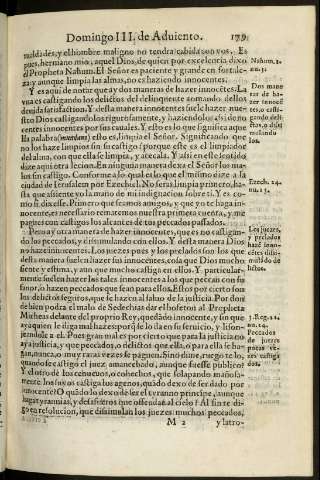 Domingo III. de Aduiento. 179.
maldades, y el hombre maligno no tendra cabida con vos. Es
pues, hermano mio, aquel Dios, de quien por excelencia dixo
el Propheta Nahum. El Señor es paciente y grande en fortale-
za: y aunque limpia las almas, no es haziendo innocentes.
Nahum. 1.
nu. 3.
Y es aqui de notar que ay dos maneras de hazer innocẽtes. La
vna es castigando los delictos del delinquente tomando dellos
deuida satisfaction. Y desta manera innocentes suele hazer nue-
stro Dios castigandolos rigurosamente, y haziendolos de no
centes innocentes por sus cutales. Y esto es lo que significa aqui
Dos mane
ras de ha-
zer innocẽ
tes, o casti-
gando deli-
ctos, o disi-
mulando
los.
lla palabra, mundans) esto es, limpia el Señor. Significando que
no los haze limpios sin su castigo: porque este es el limpiador
del alma, con que ella se limpia, y azecala. Y assi en este sentido
dize aqui otra lecion. En ninguna manera dexa el Señor los ma-
los sin castigo. Conforme a lo qual es lo que el mismo dize a la
ciudad de Ierusalem por Ezechiel. No seras limpia primero, ha-
sta que assiente yo la mano de mi indignacion sobre ti. Y es co-
Ezech. 24.
nu. 13.
mo si dixesse. Primero que seamos amigos, y que yo te haga in-
nocente, es necessario rematemos nuestra primera cuenta, y me
pagues con castigos los alcances de tus peccados passados.
Pero ay otra manera de hazer innocentes, que es no castigan-
do los peccados, y dissimulando con ellos. Y desta manera Dios
no haze innocentes. Los juezes pues y los prelados son los que
desta manera suelen hazer sus innocentes, cosa que Dios mucho
siente y estima, y aun que mucho castiga en ellos. Y particular-
Los juezes,
y prelados
hazẽ inno-
cẽtes dissi-
mulãdo de
lictos.
mente suelen hazer los tales innocentes a los que peccan con su
fauor, o hazen peccados que sean para ellos. Estos por cierto son
los delictos seguros, que se hazen al saluo de la justicia. Por don
de bien podra el malo de Sedechias dar el bofeton al Propheta
Micheas delante del proprio Rey, quedãdo innocente, y sin que
aya quien le diga mal hazes: porq̃ se lo da en su seruicio, y lison-
3. Reg. 22.
nu. 24.
geandole a el. Pues que mas es por cierto que para la justicia no
aya justicia, y que peccados, o delictos que ella, o para ella se ha-
gan, nunca, o muy raras vezes se paguen. Sino dime, ruego te lo,
quando se castigo el juez amancebado, aunque fuesse publico?
Peccados
de juezes
pocas ve-
zes castiga
dos.
Y el otro de los cohechos, que solapando mañosa-
mente los suyos castiga los agenos, quãdo dexo de ser dado por
innocente? O quãdo lo dexo de ser el tyranno principe, aunque
haga tyrannias, y desafueros que offendan al cielo? Al fin te di-
go en resolucion, que dissimulan los juezes muchos peccados,
M 2 y latro-